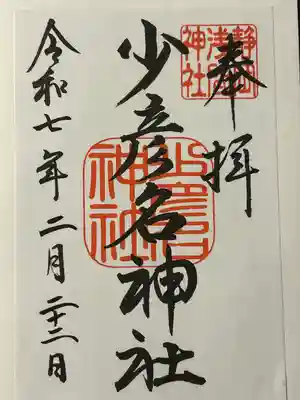 奉拝
静岡
浅間
神社
少彦名神社
令和七年二月二十二日